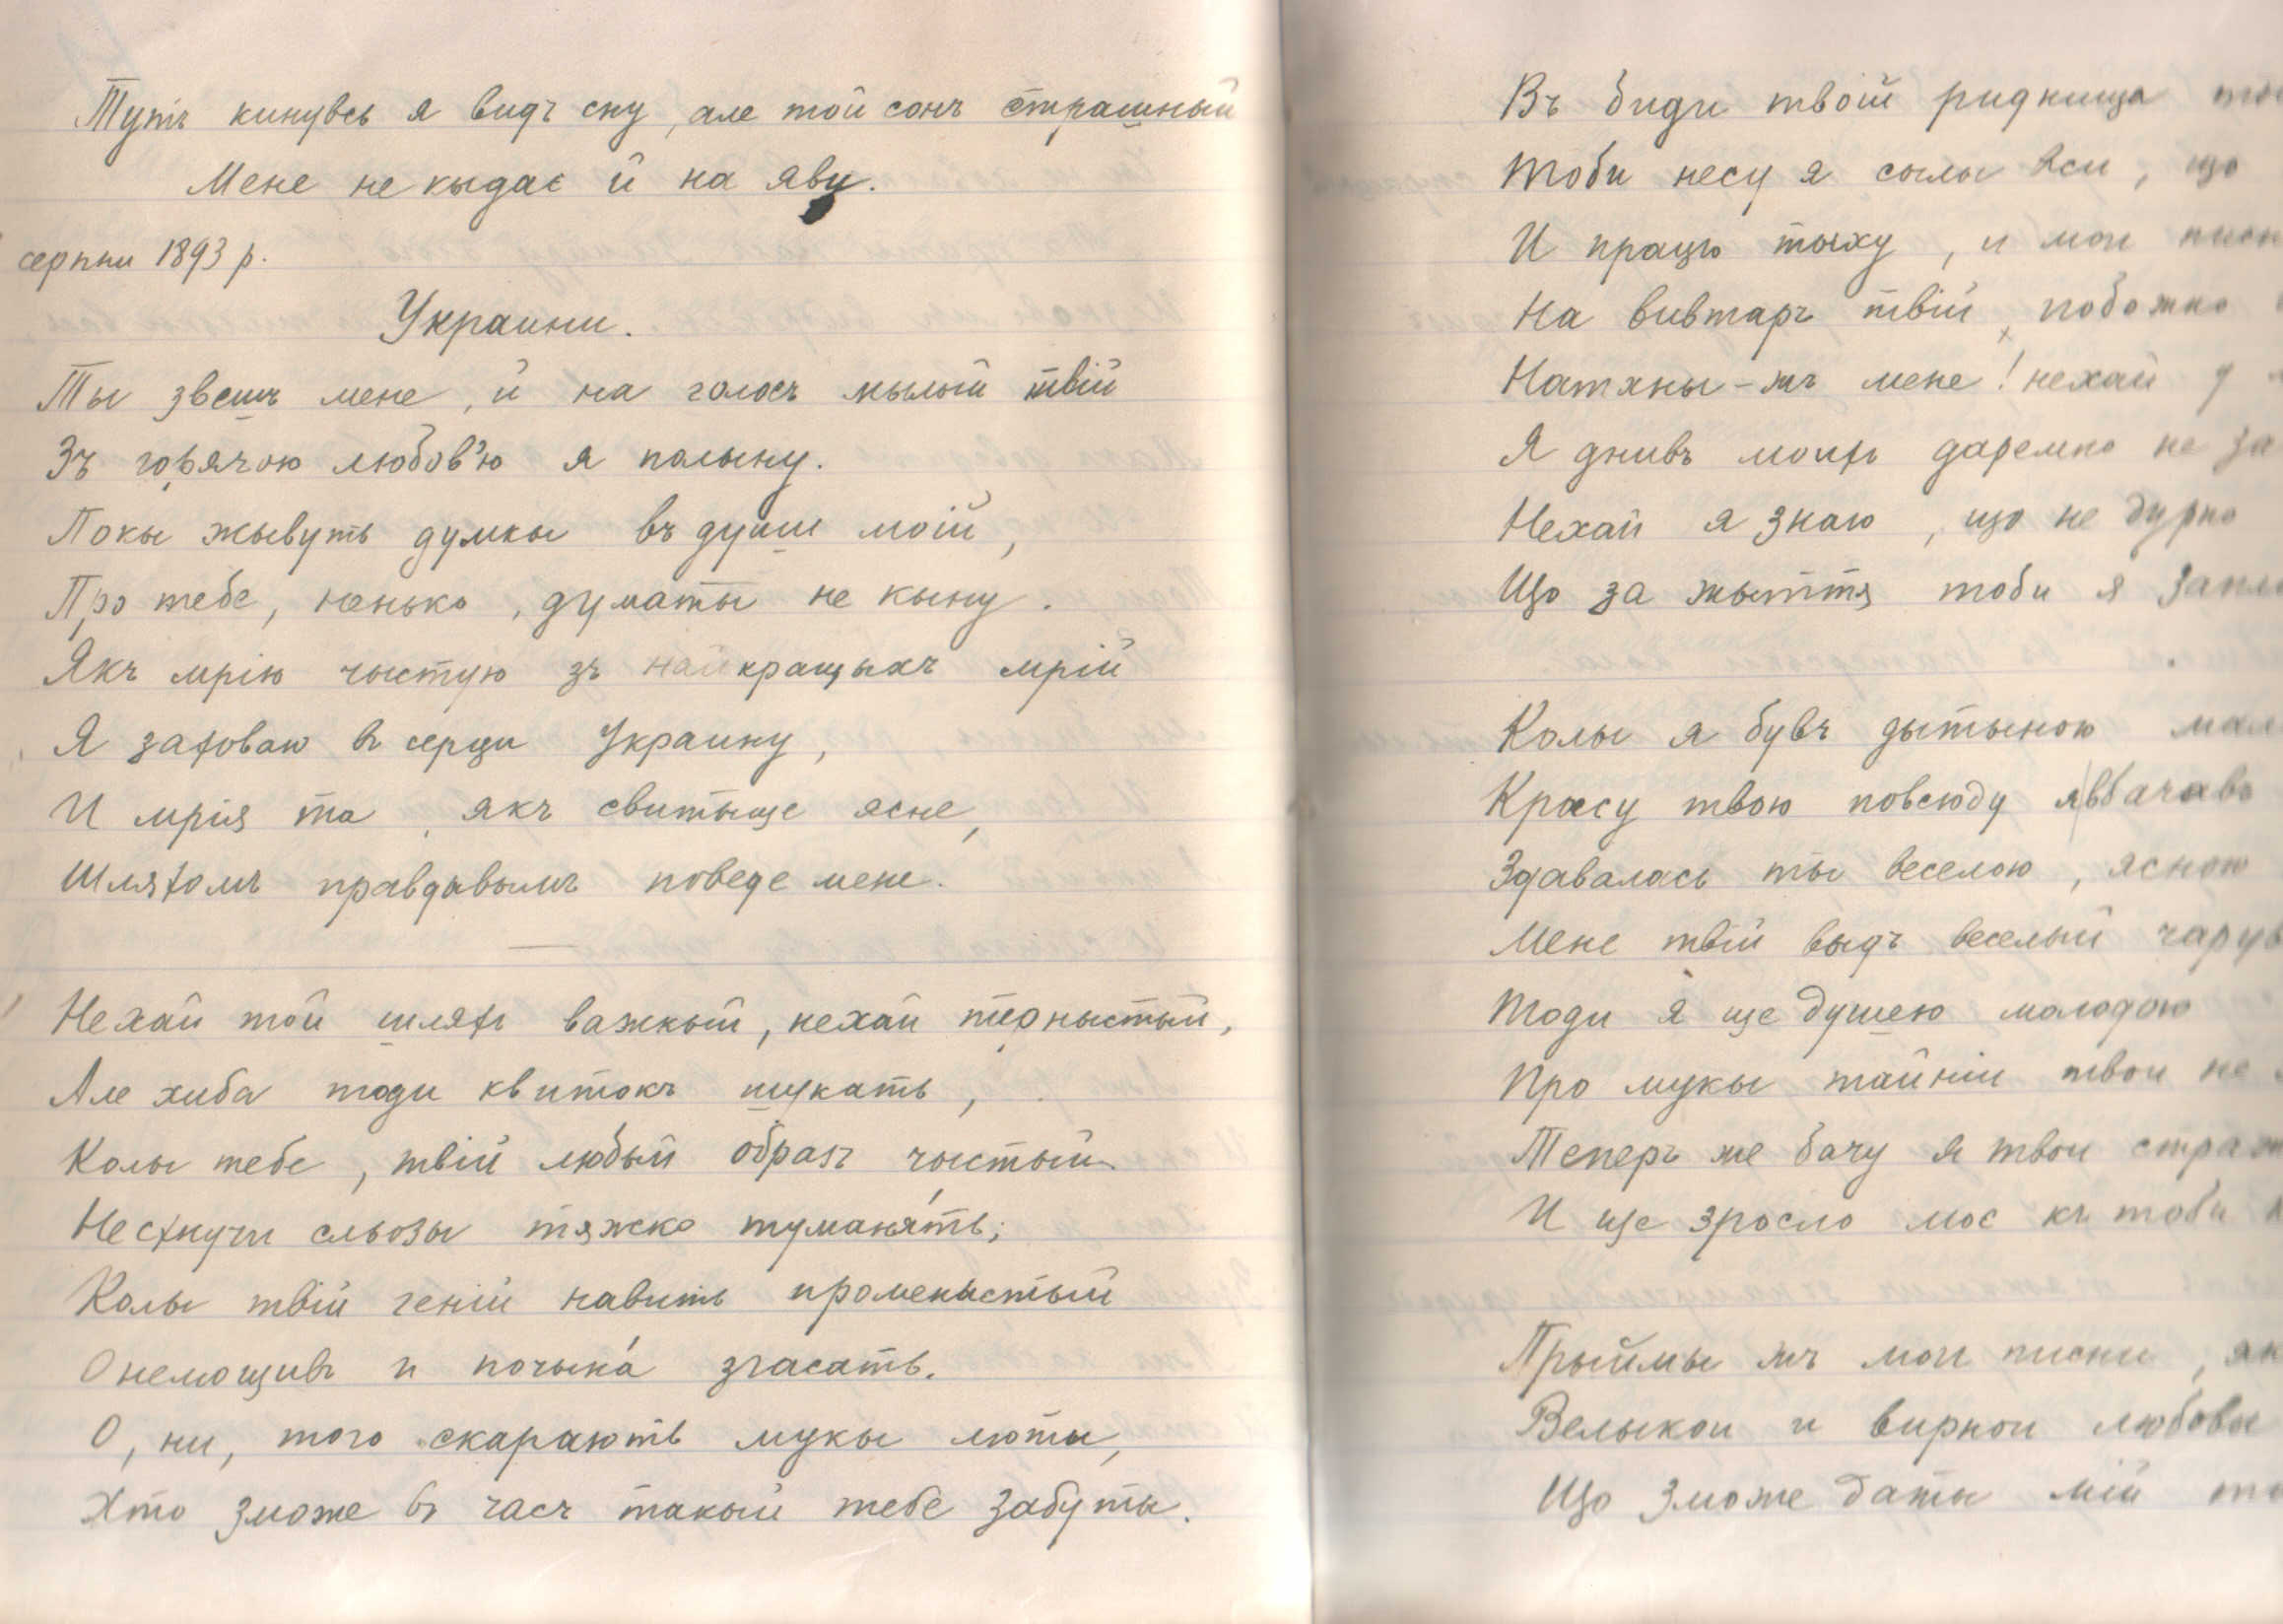 Тутъ кинувсь я видъ сну, але той сонъ страшный
Мене не кыдає й на яву.
серпни 1893 р.
Украини.
Ты звешъ мене, й на голосъ мылый твій
Зъ горячою любов'ю я полыну.
Покы жывуть думкы въ души моій,
Про тебе, ненько, думаты не кыну.
Якъ мрію чыстую зъ найкращыхъ мрій
Я заховаю въ серци Украину,
И мрія та, якъ свитыще ясне,
Шляхомъ правдывымъ поведе мене.
Нехай той шляхъ важкый, нехай терныстый,
Але хиба тоди квитокъ шукать,
Колы тебе, твій любый образъ чыстый
Несхнучи сльозы тяжко туманять;
Колы твій геній навить променыстый
Онемощивъ и почына́ згасать.
О, ни, того скарають мукы люти,
Хто зможе въ часъ такый тебе забуты.
Въ биди твоій риднища
Тоби несу я сылы вси, що
И працю тыху, и мои
На вивтаръ твій, побожно
Натхны-жъ мене! нехай у
Я днивъ моихъ даремно не за
Нехай я знаю, що не дурно
Що за жыття тоби я
Колы я бувъ дытыною мал
Красу твою повсюду я вбачавъ
Здавалась ты веселою, ясною
Мене твій выдъ веселый чарув
Тоди я ще душею молодою
Про мукы тайніи твои не
Теперъ же бачу я твои страж
И ще зросло моє къ тоби
Прыймы жъ мои писни, як
Велыкои и вирнои любовы
Що зможе даты мій